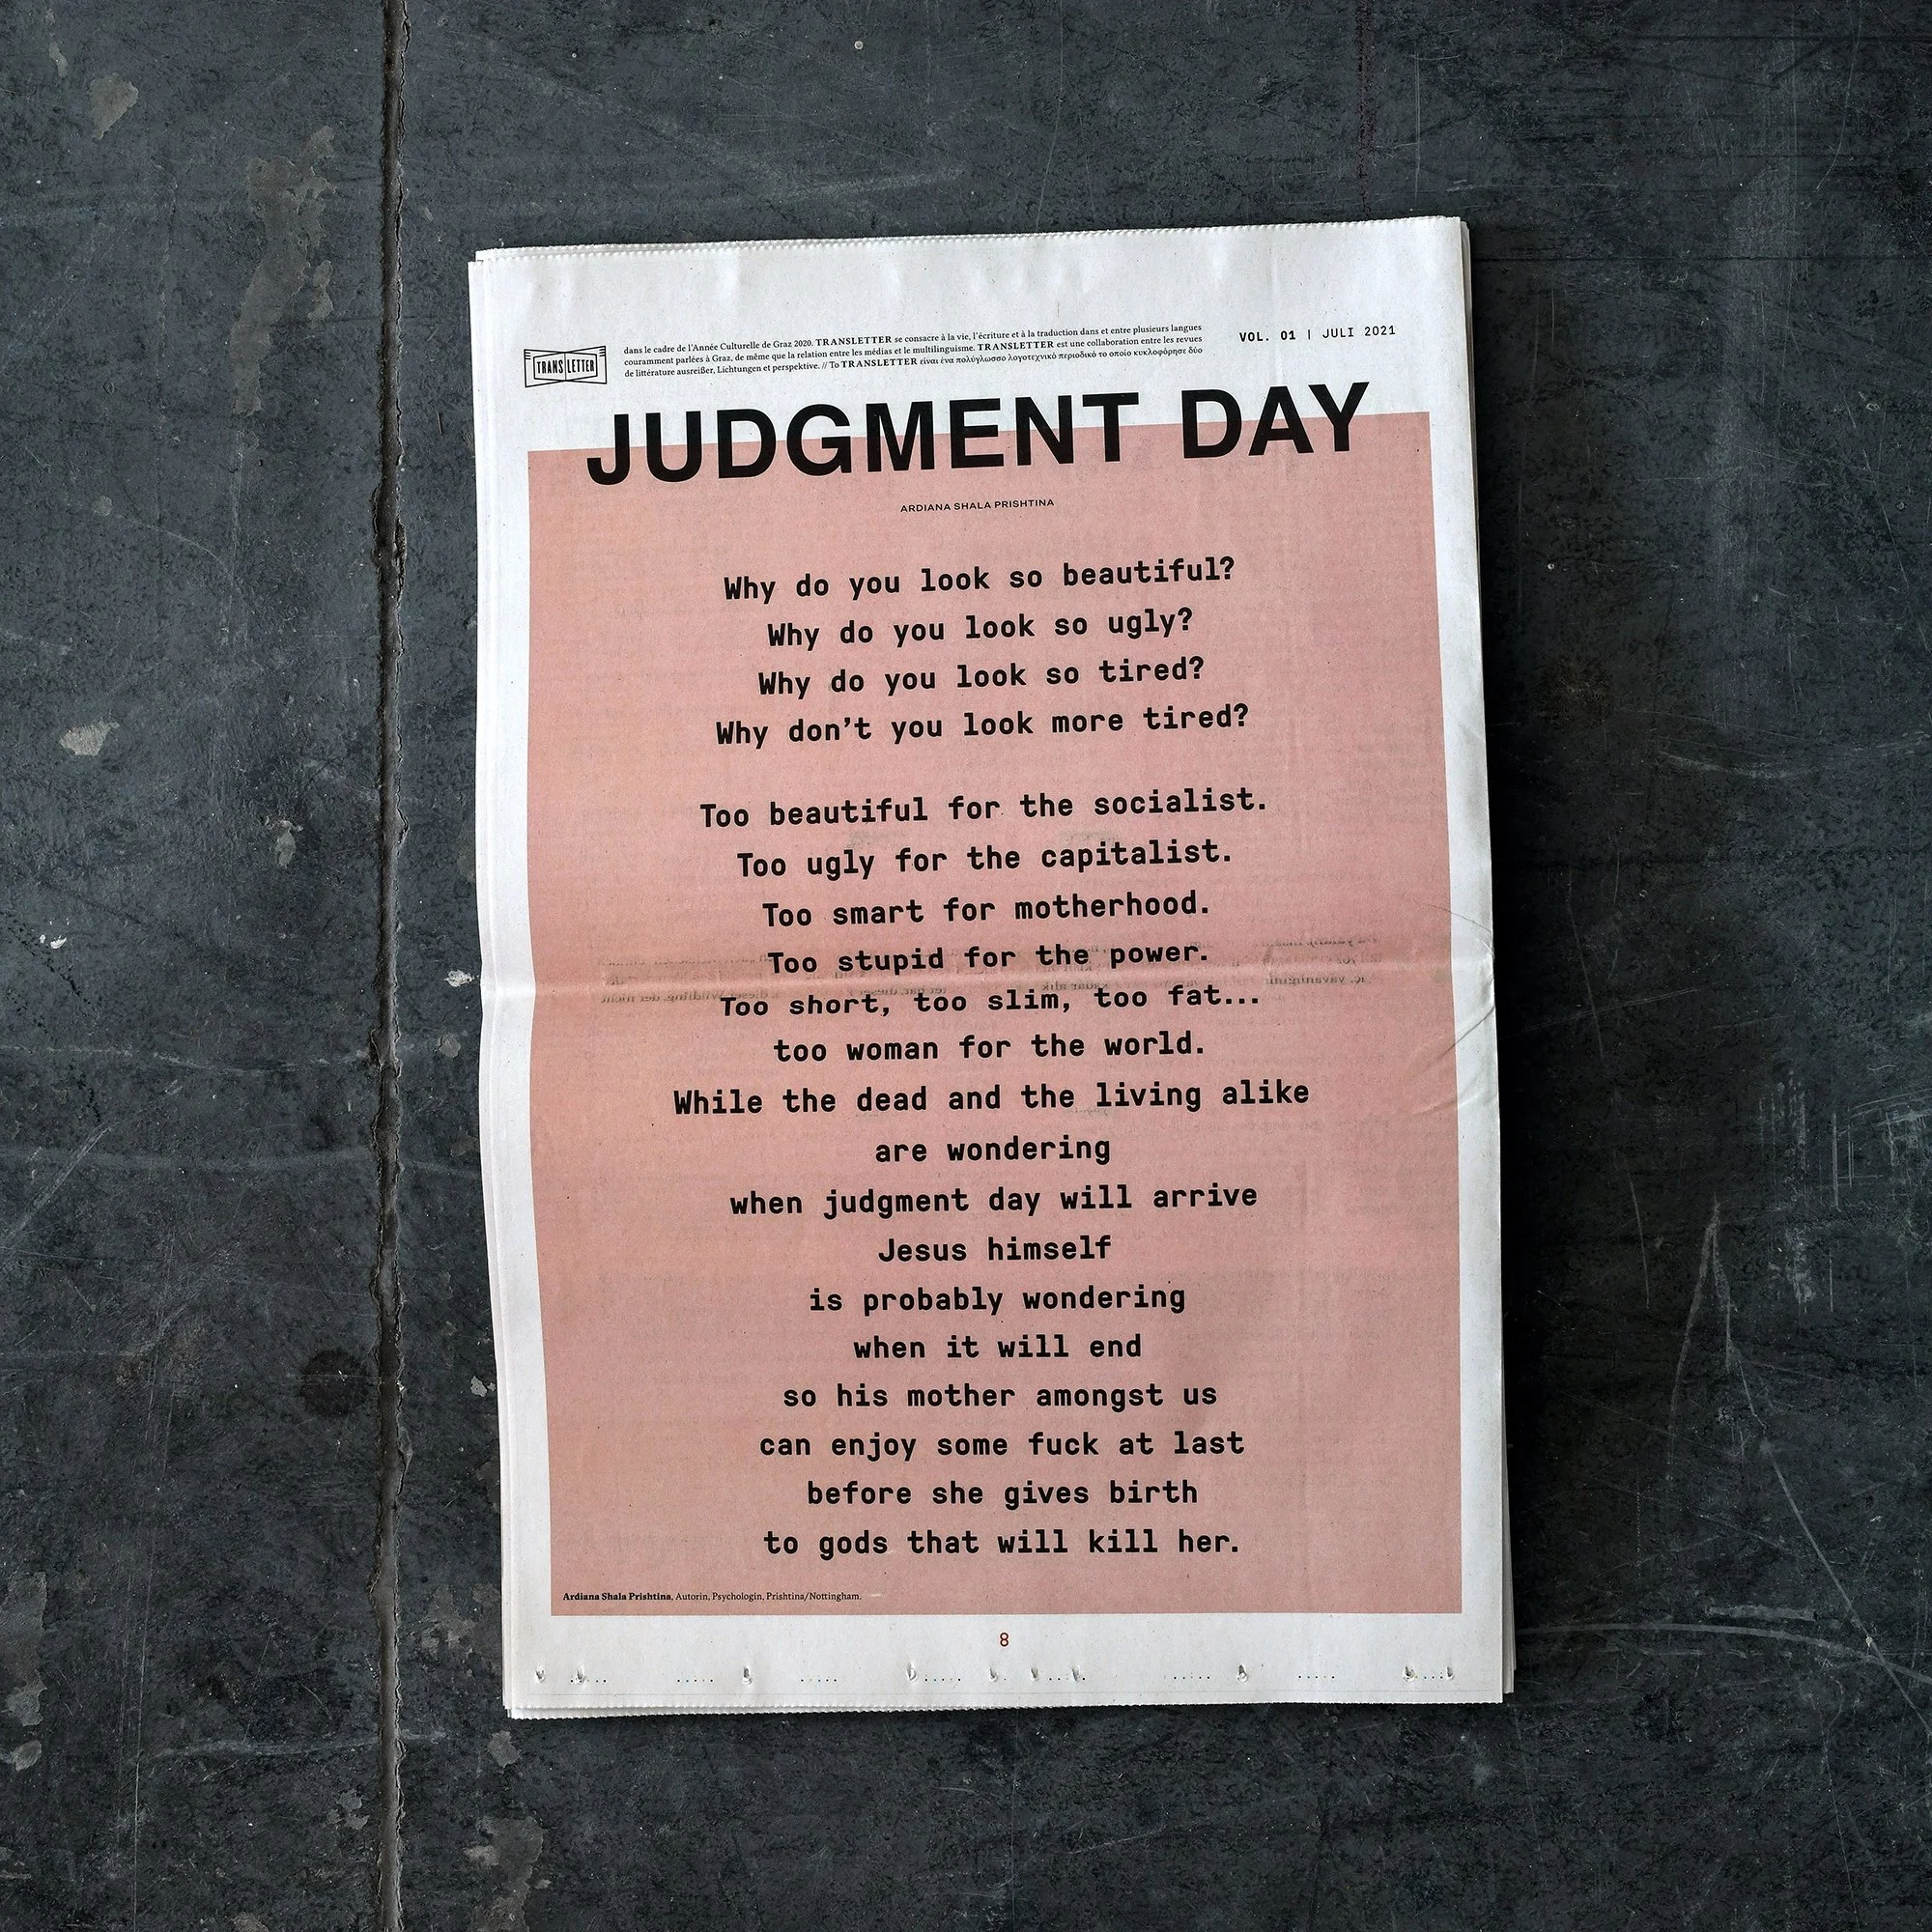 TRANS LETTER
dans le cadre de l'Année Culturelle de Graz 2020. TRANSLETTER se consacre à la vie, l'écriture et à la traduction dans et entre plusieurs langues
couramment parlées à Graz, de même que la relation entre les médias et le multilinguisme. TRANSLETTER est une collaboration entre les revues
de littérature ausreißer, Lichtungen et perspektive. // Το TRANSLETTER είναι ένα πολύγλωσσο λογοτεχνικό περιοδικό το οποίο κυκλοφόρησε δύο
VOL. 01 | JULI 2021
JUDGMENT DAY
ARDIANA SHALA PRISHTINA
Why do you look so beautiful?
Why do you look so ugly?
Why do you look so tired?
Why don't you look more tired?
Too beautiful for the socialist.
Too ugly for the capitalist.
Too smart for motherhood.
Too stupid for the power.
Too short, too slim, too fat...
too woman for the world.
While the dead and the living alike
are wondering
when judgment day will arrive
Jesus himself
is probably wondering
when it will end
so his mother amongst us
can enjoy some fuck at last
before she gives birth
to gods that will kill her.
Ardiana Shala Prishtina, Autorin, Psychologin, Prishtina/Nottingham.
8